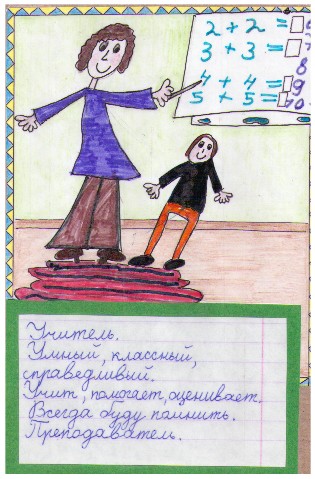 2 + 2 = 6
3 + 3 = 7
8
4 + 4 = 9
5 + 5 = 10
Учитель.
Умный, классный,
справедливый.
Учит, помогает, оценивает.
Всегда буду помнить.
Преподаватель.